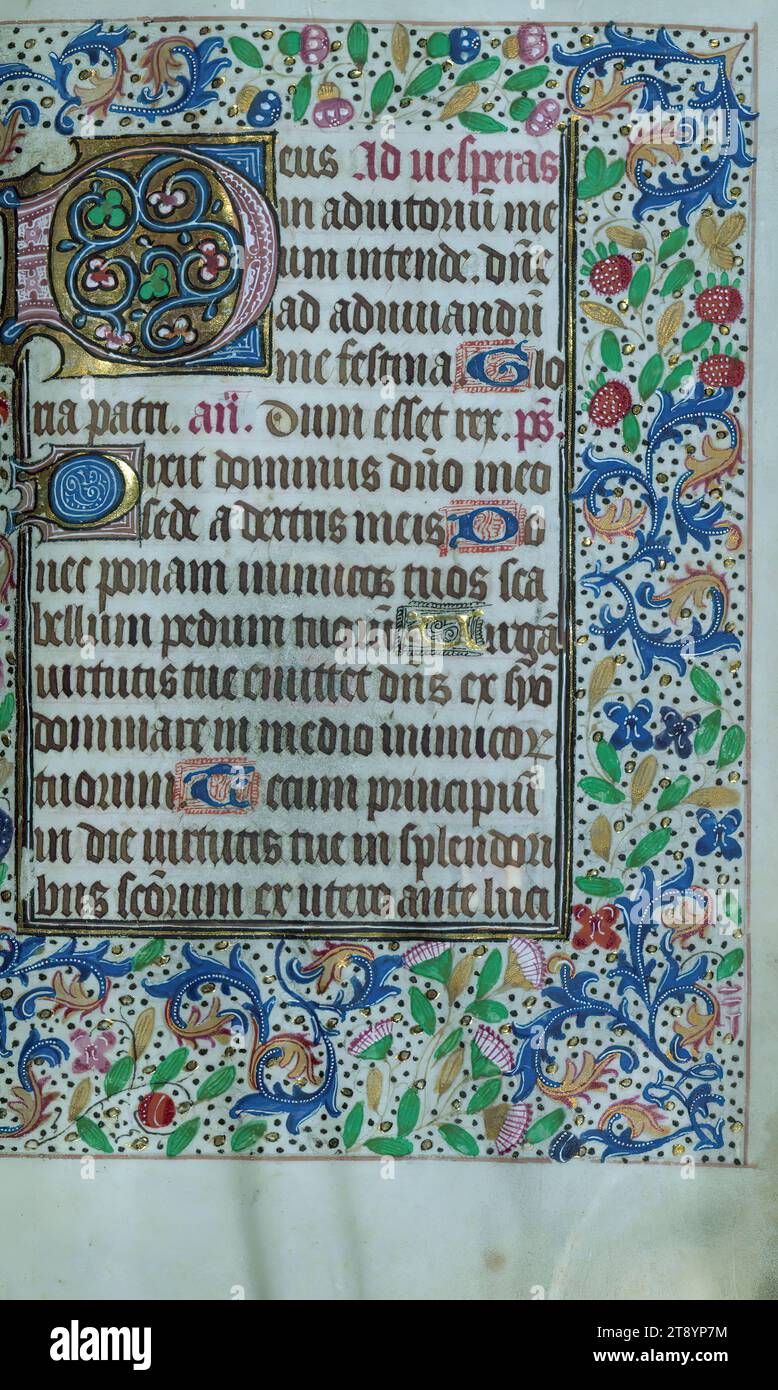 Deus Ad uesperas
in adiutoriū me
um intende. dn̄e
ad adiuuandū
me festina Glo
ria patri. an̄. Dum esset rex. ps̄.
Dixit dominus dn̄o meo
sede a dextris meis Do
nec ponam inimicos tuos sca
bellum pedum tuorū Uirgā
uirtutis tue emittet dn̄s ex syō
dominare in medio inimicor
tuorum Tecum principiū
in die uirtutis tue in splendori
bus scōrum ex utero ante luci
alamy
alamy
Image ID: 2T8YP7M
www.alamy.com